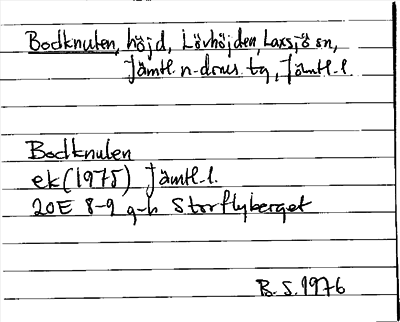 Bodknulen, höjd, Lövhöjden, Laxsjö sn,
Jämtl. n. doms. tg, Jämtl. l.
Bodknulen
ek (1975) Jämtl. l.
20E 8-9 g-h Storflyberget
B. S. 1976